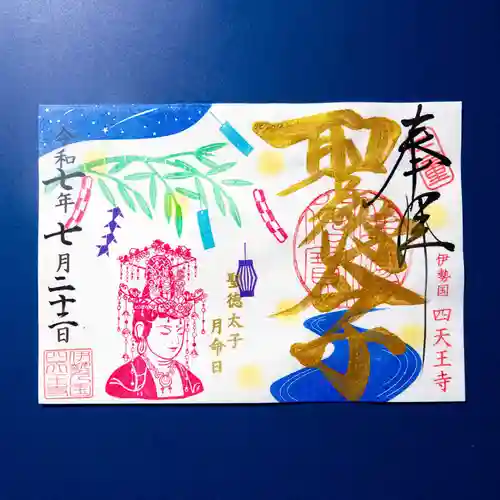 奉拝
伊勢国 四天王寺
聖徳太子
聖徳太子
月命日
令和七年七月二十二日